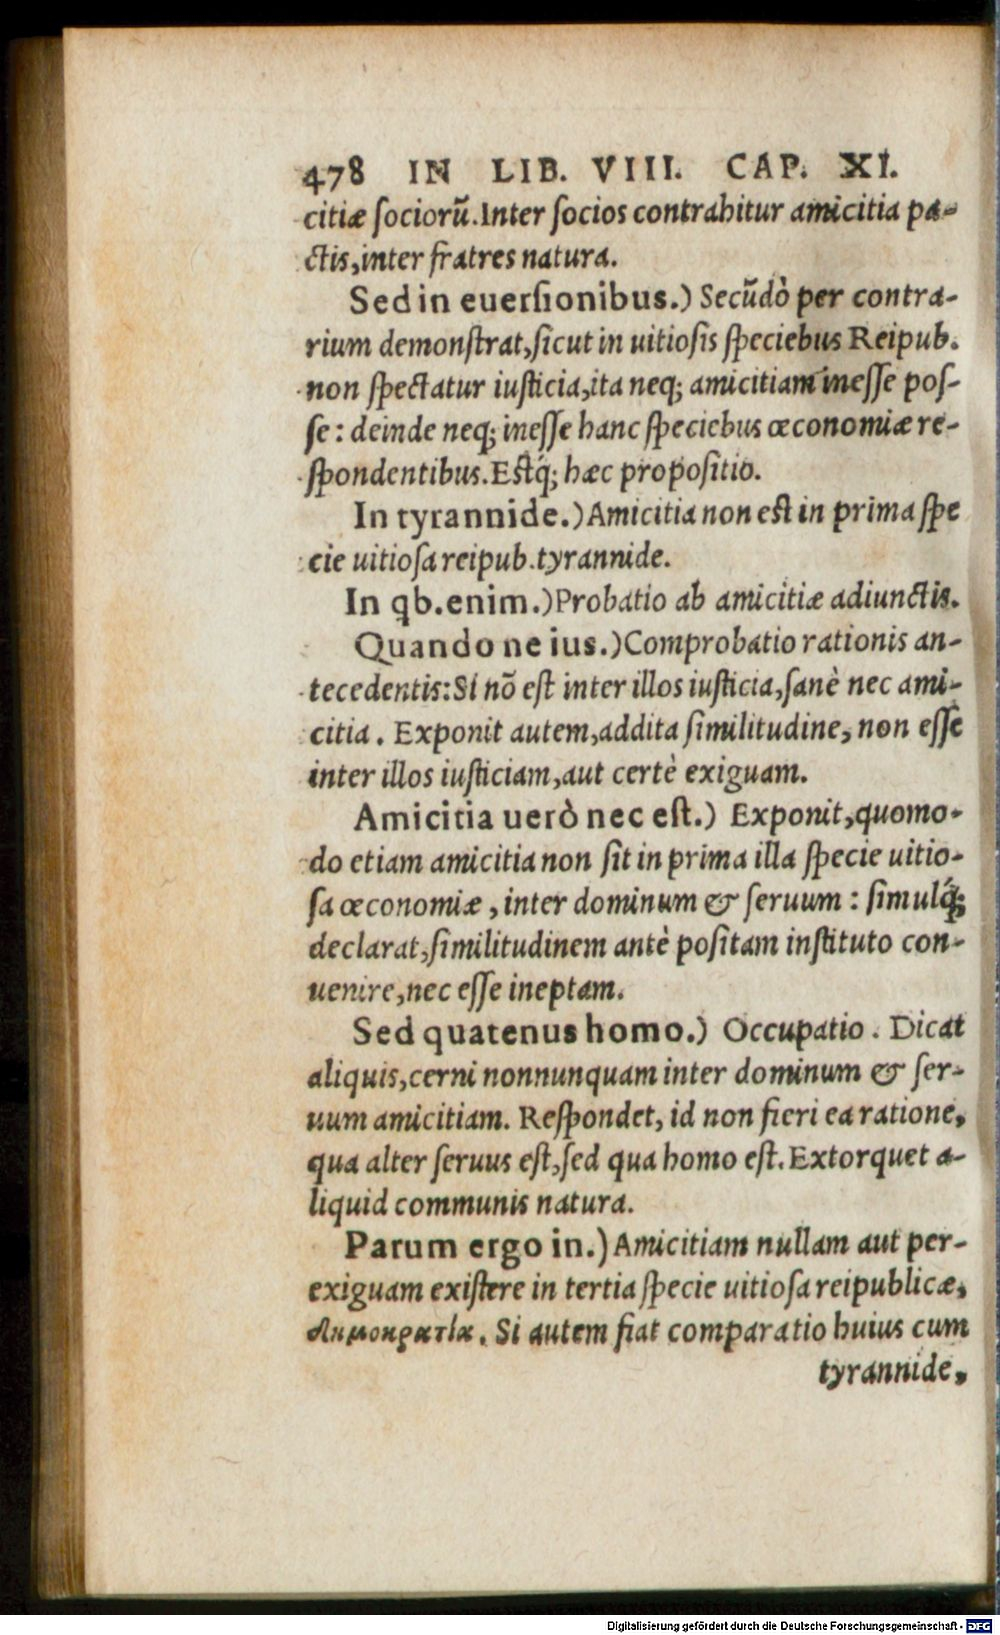 478 IN LIB. VIII. CAP. XI.
citiæ ſociorũ. Inter ſocios contrahitur amicitia pa-
ctis, inter fratres natura.
Sed in euerſionibus.) Secũdò per contra-
rium demonſtrat, ſicut in uitioſis ſpeciebus Reipub.
non ſpectatur iuſticia, ita neq; amicitiam ineſſe poſ-
ſe: deinde neq; ineſſe hanc ſpeciebus œconomiæ re-
ſpondentibus. Eſtq́; hæc propoſitio.
In tyrannide.) Amicitia non eſt in prima ſpe
cie uitioſa reipub. tyrannide.
In qb. enim.) Probatio ab amicitiæ adiunctis.
Quando ne ius.) Comprobatio rationis an-
tecedentis: Si nõ eſt inter illos iuſticia, ſanè nec ami-
citia. Exponit autem, addita ſimilitudine, non eſſe
inter illos iuſticiam, aut certè exiguam.
Amicitia uerò nec eſt.) Exponit, quomo-
do etiam amicitia non ſit in prima illa ſpecie uitio-
ſa œconomiæ, inter dominum & ſeruum: ſimulq́;
declarat, ſimilitudinem antè poſitam inſtituto con-
uenire, nec eſſe ineptam.
Sed quatenus homo.) Occupatio. Dicat
aliquis, cerni nonnunquam inter dominum & ſer-
uum amicitiam. Reſpondet, id non fieri ea ratione,
qua alter ſeruus eſt, ſed qua homo eſt. Extorquet a-
liquid communis natura.
Parum ergo in.) Amicitiam nullam aut per-
exiguam exiſtere in tertia ſpecie uitioſa reipublicæ,
δημοκρατία. Si autem fiat comparatio huius cum
tyrannide,
Digitalisierung gefördert durch die Deutsche Forschungsgemeinschaft - DFG